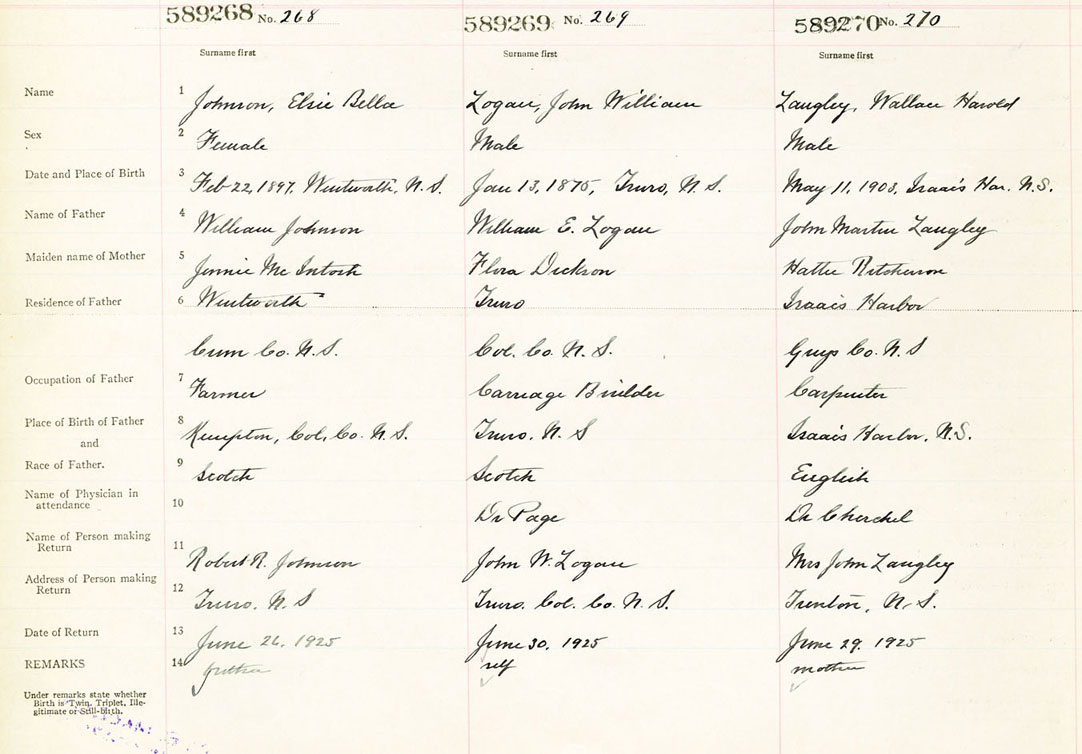 589268 No. 268 589269 No. 269 589270 No. 270
Surname first Surname first Surname first
Name 1 Johnson, Elsie Bella Logan, John William Langley, Wallace Harold
Sex 2 Female Male Male
Date and Place of Birth 3 Feb 22, 1897, Wentworth, N.S. Jan 13, 1875, Truro, N.S. May 11, 1903, Isaacs Har. N.S.
Name of Father 4 William Johnson William E. Logan John Martin Langley
Maiden name of Mother 5 Jennie McIntosh Flora Dickson Hattie
Residence of Father 6 Wentworth Truro Isaacs Harbor
Cum Co. N.S. Col. Co. N.S. Guys Co. N.S
Occupation of Father 7 Farmer Carriage Builder Carpenter
Place of Birth of Father 8 Kempton, Col. Co. N.S. Truro. N.S Isaacs Harbor. N.S.
and
Race of Father. 9 Scotch Scotch English
Name of Physician in
attendance 10 Dr Page Dr
Name of Person making
Return 11 Robert R. Johnson John W. Logan Mrs John Langley
Address of Person making
Return 12 Truro. N.S Truro. Col. Co. N.S. Trenton, N.S.
Date of Return 13 June 26, 1925 June 30, 1925 June 29, 1925
REMARKS 14 self mother
Under remarks state whether
Birth is Twin, Triplet, Ille-
gitimate or Still-birth.